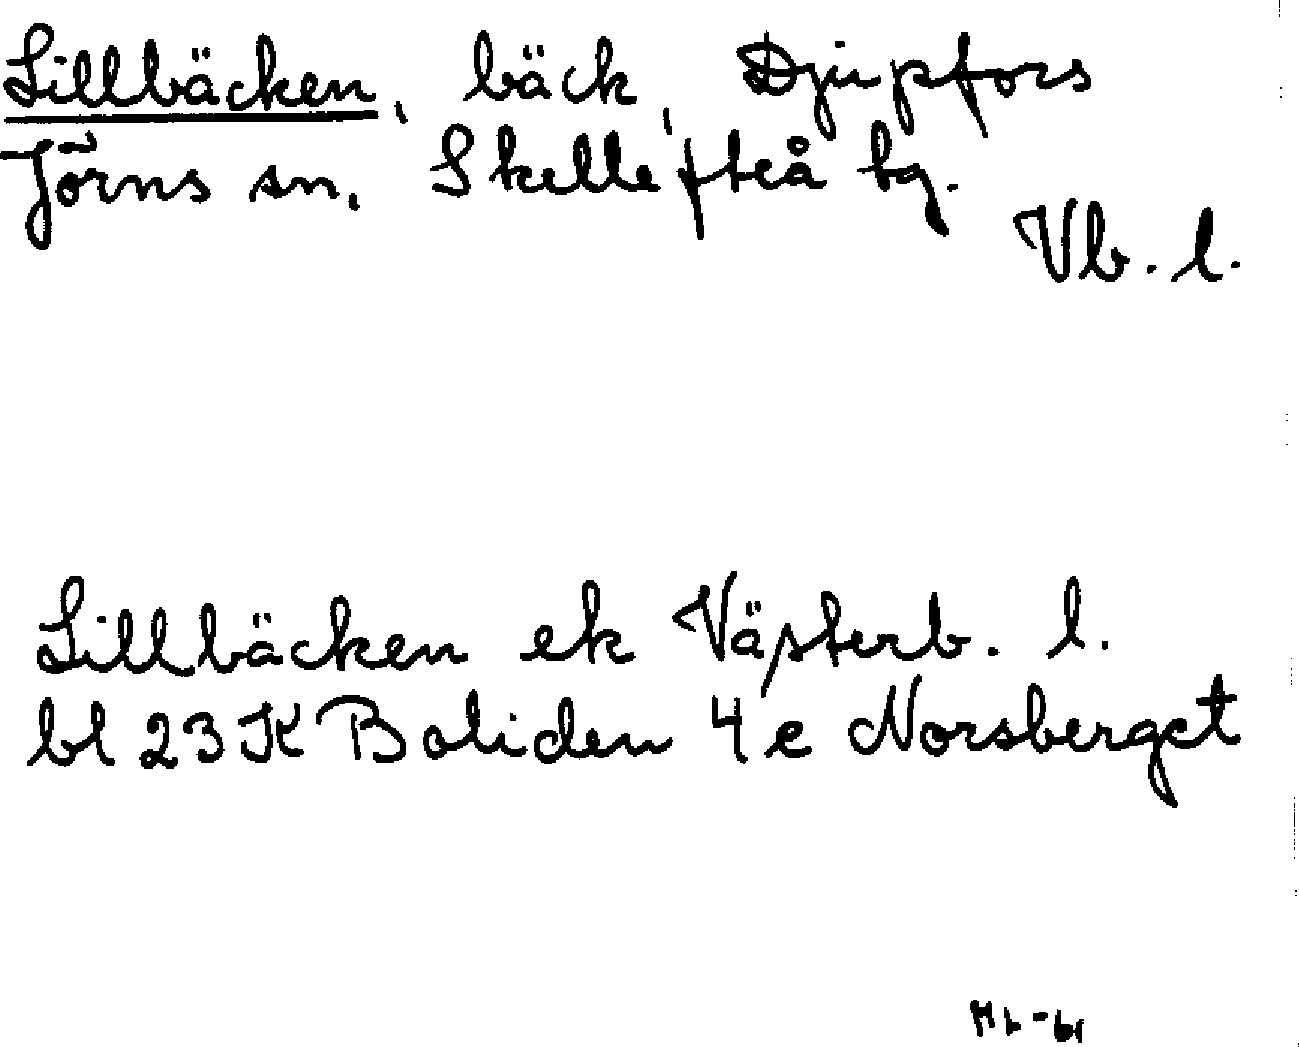 Lillbäcken, bäck, Djupfors
Jörns sn, Skellefteå tg.
Vb. l.
Lillbäcken ek Västerb. l.
bl 23 K Boliden 4 e Norsberget